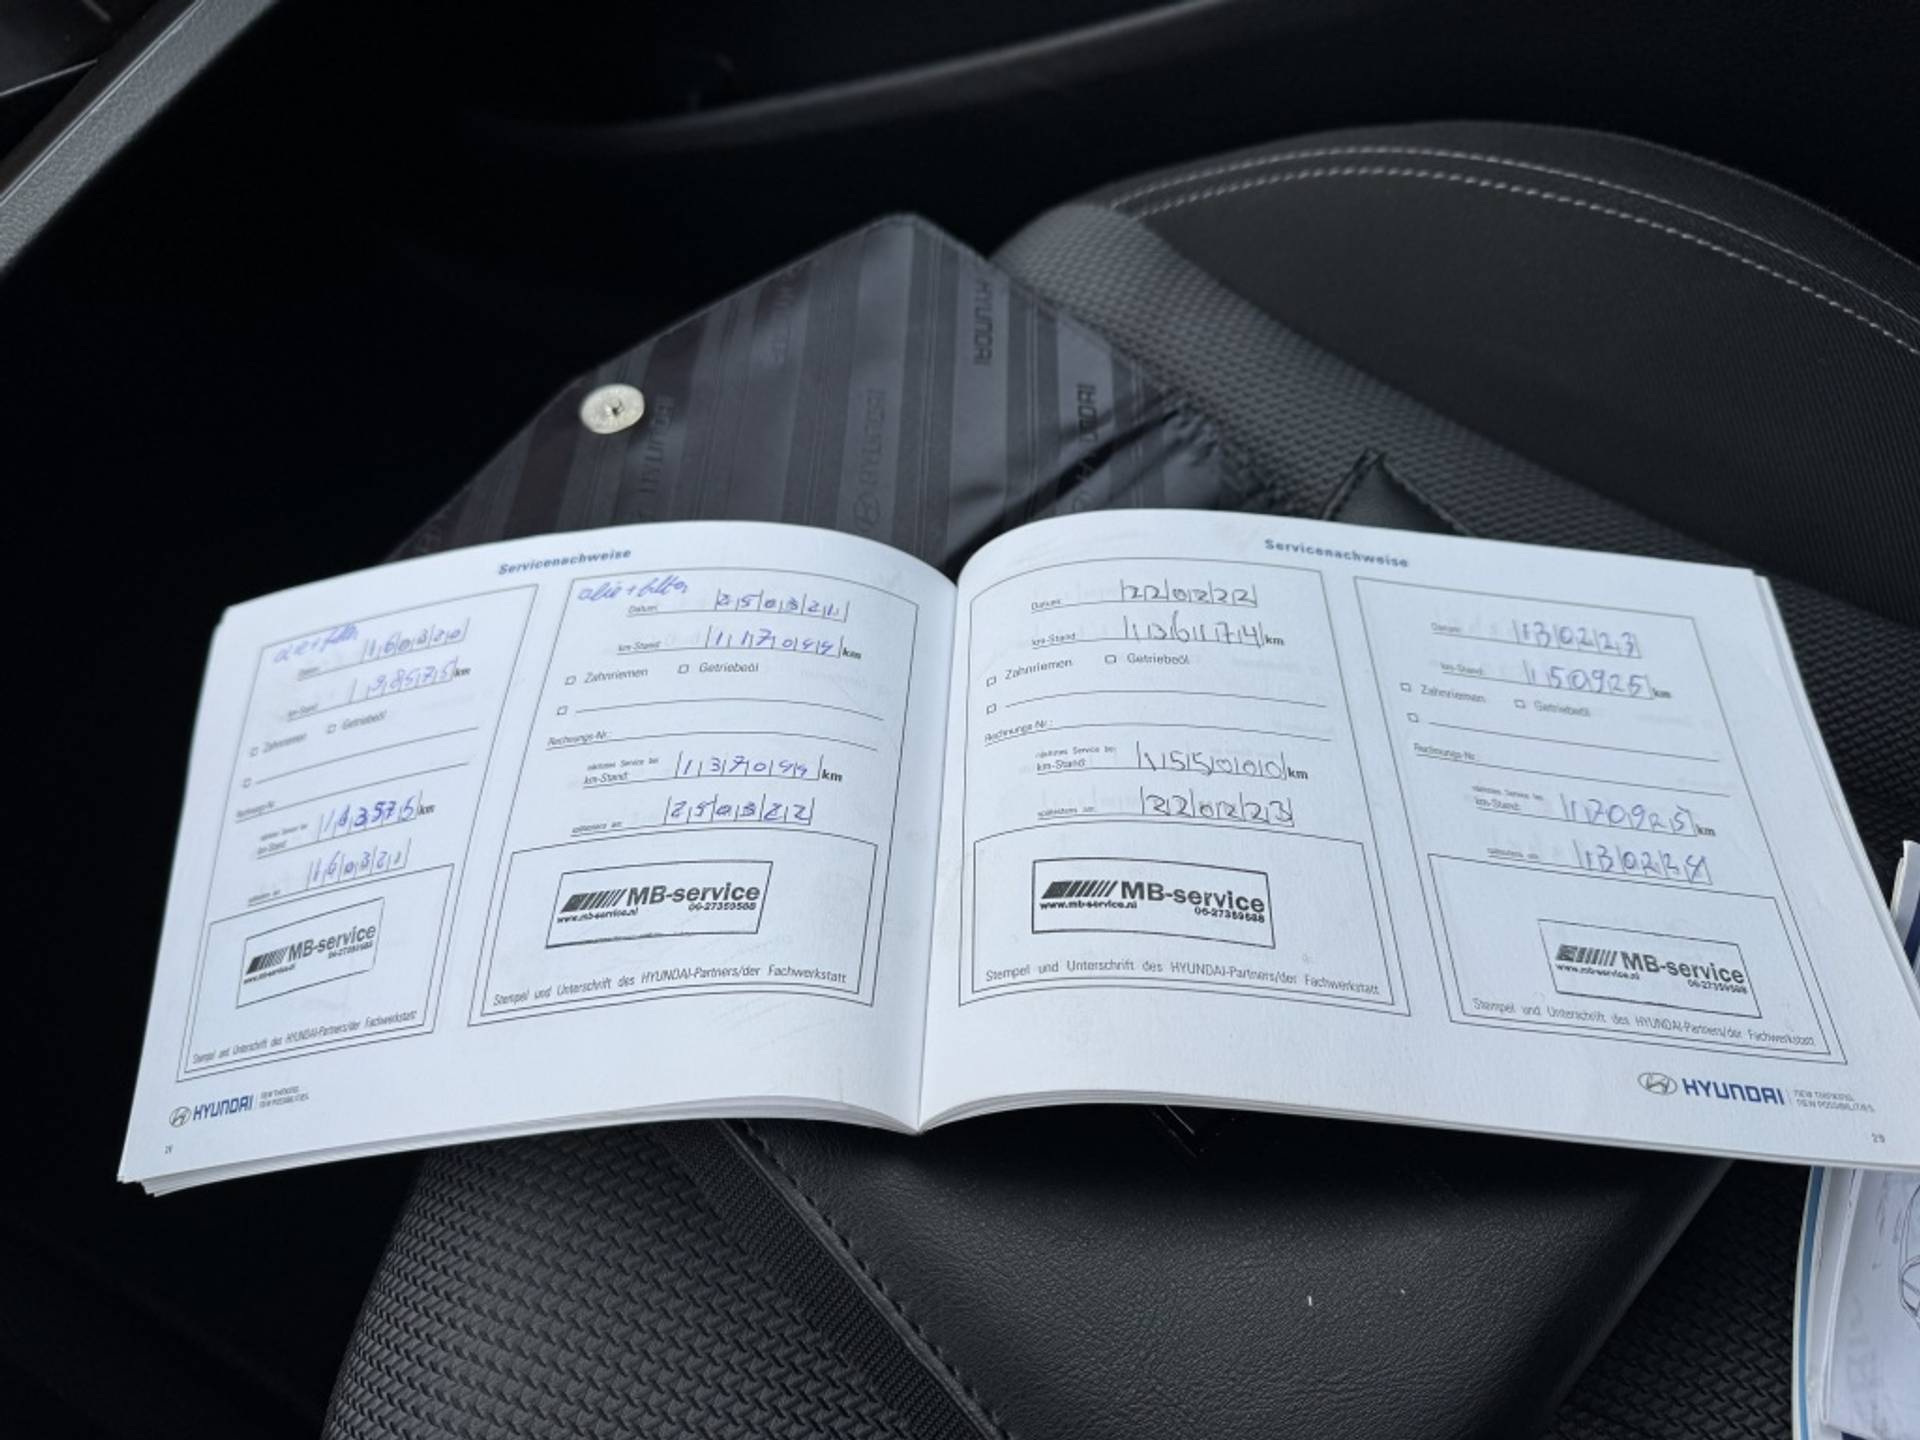 HYUNDAI
HYUNDAI
HYUNDAI
HYUNDAI
Servicenachweise
160320
km-Stand: 98575 km
Zahnriemen Getriebeöl
Rechnungs-Nr.:
nächstes Service bei
km-Stand: km
spätestens am: 160321
MB-service
www.mb-service.nl 06-27359588
Stempel und Unterschrift des HYUNDAI-Partners/der Fachwerkstatt
olie + filter
Datum: 250321
km-Stand: 117099 km
Zahnriemen Getriebeöl
Rechnungs-Nr.:
nächstes Service bei
km-Stand: 137099 km
spätestens am: 250322
MB-service
www.mb-service.nl 06-27359588
Stempel und Unterschrift des HYUNDAI-Partners/der Fachwerkstatt
HYUNDAI NEW THINKING.
NEW POSSIBILITIES.
28
Servicenachweise
Datum: 220222
km-Stand: 136174 km
Zahnriemen Getriebeöl
Rechnungs-Nr.:
nächstes Service bei
km-Stand: 155000 km
spätestens am: 220223
MB-service
www.mb-service.nl 06-27359588
Stempel und Unterschrift des HYUNDAI-Partners/der Fachwerkstatt
Datum: 130223
km-Stand: 150925 km
Zahnriemen Getriebeöl
Rechnungs-Nr.:
nächstes Service bei
km-Stand: 170925 km
spätestens am: 130224
MB-service
www.mb-service.nl 06-27359588
Stempel und Unterschrift des HYUNDAI-Partners/der Fachwerkstatt
HYUNDAI NEW THINKING.
NEW POSSIBILITIES.
29